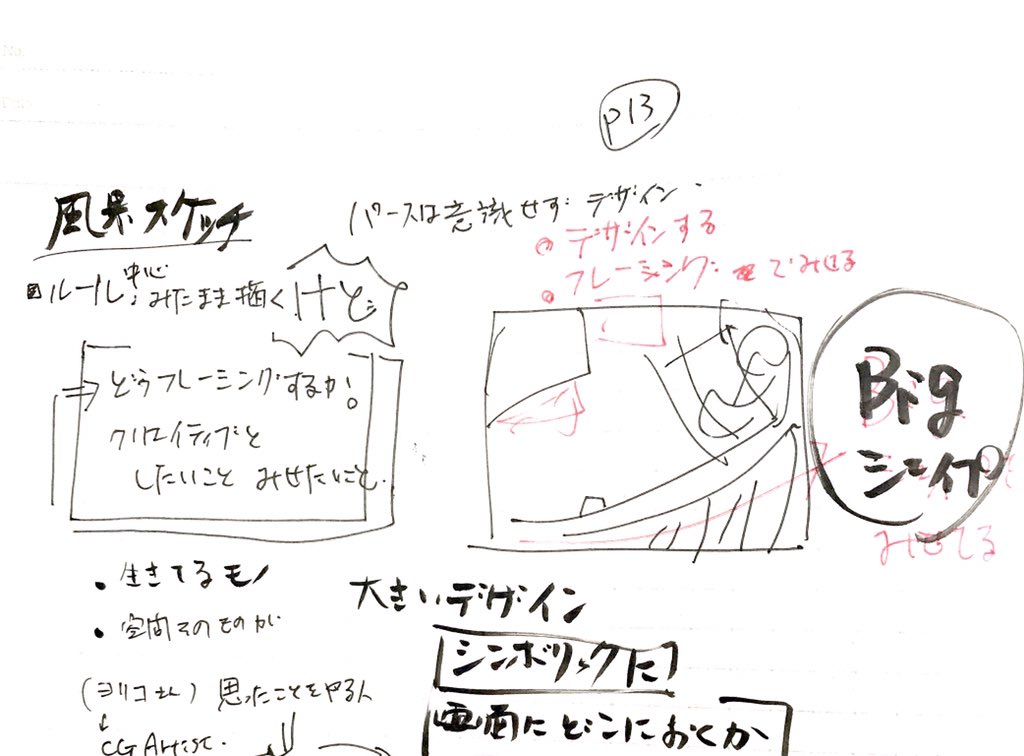 p13
風景スケッチ
パースは意識せず デザイン
デザインする
フレーミング でみせる
ルール 中心 みたまま描く けど
⇒ どうフレーミングするか!
クリエイティブと
したいこと みせたいこと.
Big
シェイプ
みせてる
・生きてるモノ
・空間そのものが
大きいデザイン
シンボリックに
(ヨリコさん) 思ったことをやる人
画面にどこにおくか
CG Artist.